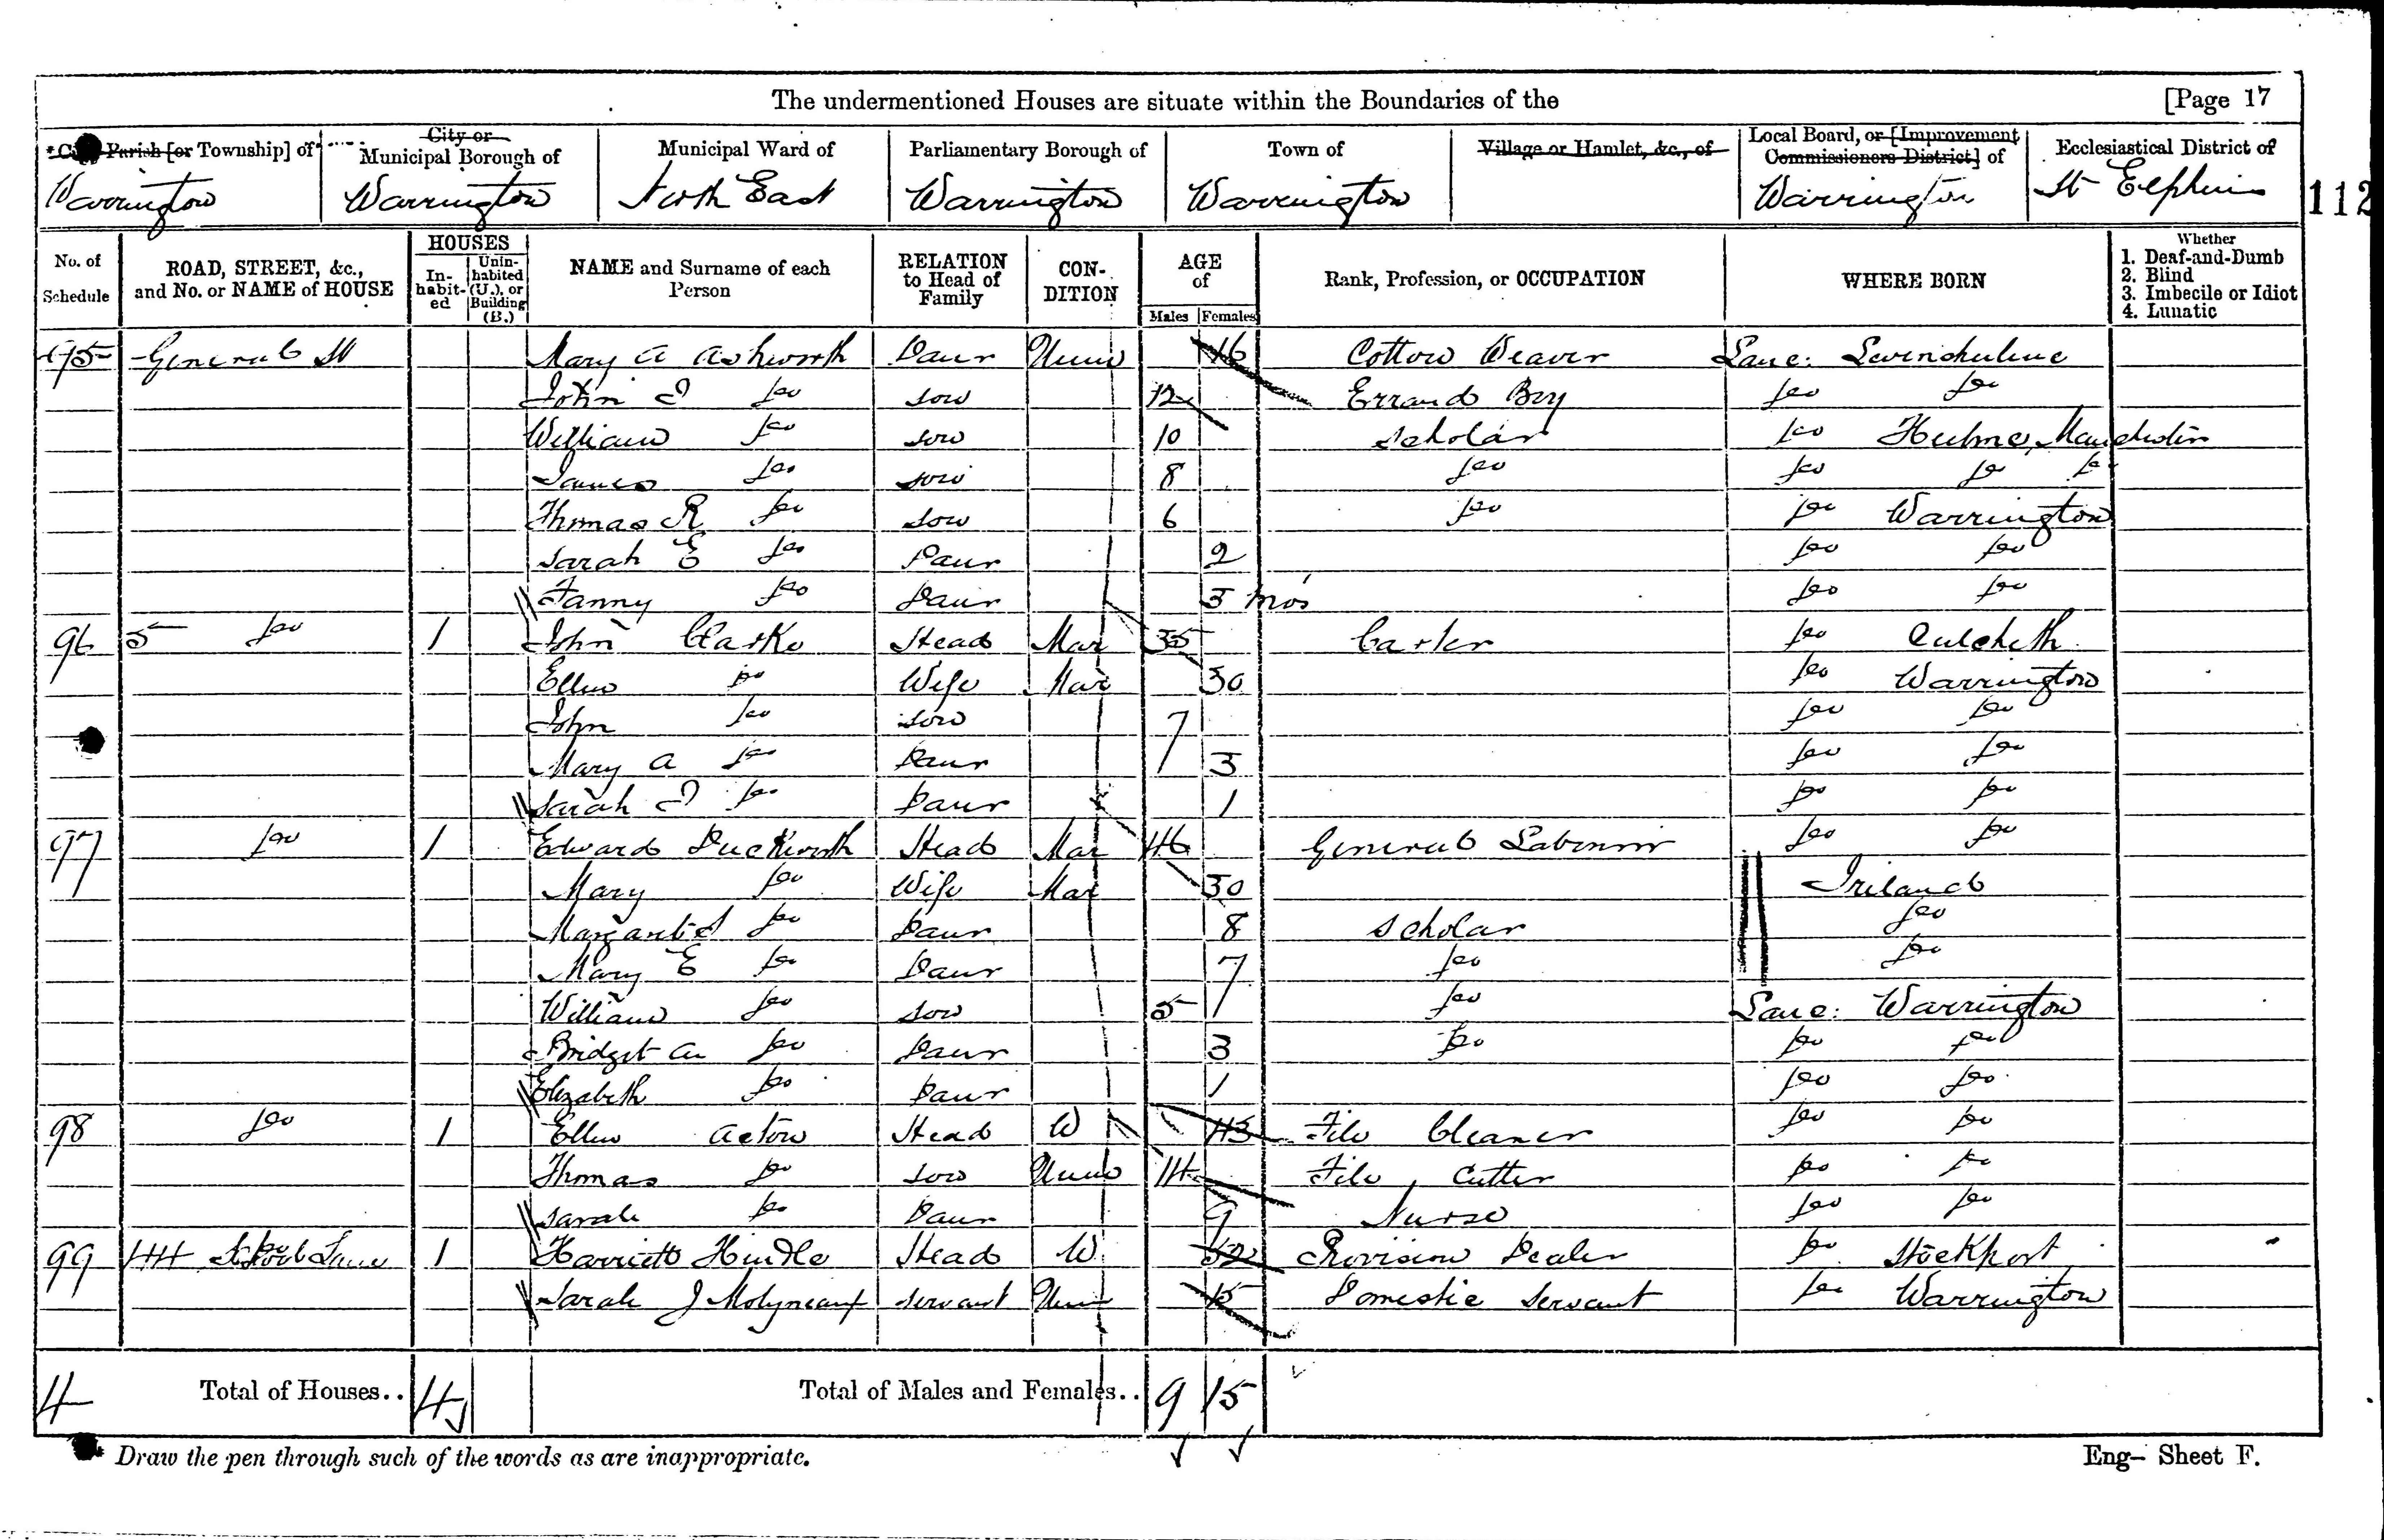 The undermentioned Houses are situate within the Boundaries of the [Page 17
Parish [or Township] of City or Municipal Borough of Municipal Ward of Parliamentary Borough of Town of Village or Hamlet, &c., of Local Board, or [Improvement Commissioners District] of Ecclesiastical District of
Warrington Warrington North East Warrington Warrington Warrington St Elphins 112
No. of Schedule ROAD, STREET, &c., and No. or NAME of HOUSE HOUSES In-habit-ed Unin-habited (U.), or Building (B.) NAME and Surname of each Person RELATION to Head of Family CON-DITION AGE of Males Females Rank, Profession, or OCCUPATION WHERE BORN Whether 1. Deaf-and-Dumb 2. Blind 3. Imbecile or Idiot 4. Lunatic
95 General St Mary A Ashworth Daur Unm 16 Cotton Weaver Lanc: Levenshulme
John J Do Son 12 Errand Boy Do Do
William Do Son 10 Scholar Do Hulme, Manchester
James Do Son 8 Do Do Do Do
Thomas R Do Son 6 Do Do Warrington
Sarah E Do Daur 2 Do Do
Fanny Do Daur 3 mos Do Do
96 5 Do 1 John Clarke Head Mar 35 Carter Do Culcheth
Ellen Do Wife Mar 30 Do Warrington
John Do Son 7 Do Do
Mary A Do Daur 3 Do Do
Sarah J Do Daur 1 Do Do
97 Do 1 Edward Duckworth Head Mar 46 General Labourer Do Do
Mary Do Wife Mar 30 Ireland
Margaret Do Daur 8 Scholar Do
Mary E Do Daur 7 Do Do
William Do Son 5 Do Lanc: Warrington
Bridget An Do Daur 3 Do Do Do
Elizabeth Do Daur 1 Do Do
98 Do 1 Ellen Acton Head W 43 File Cleaner Do Do
Thomas Do Son Unm 14 File Cutter Do Do
Sarah Do Daur 9 Nurse Do Do
99 144 School Lane 1 Harriett Hindle Head W 52 Provision Dealer Do Stockport
Sarah J Molyneaux Servant Unm 15 Domestic Servant Do Warrington
4 Total of Houses.. 4 Total of Males and Females.. 9 15
* Draw the pen through such of the words as are inappropriate. Eng- Sheet F.